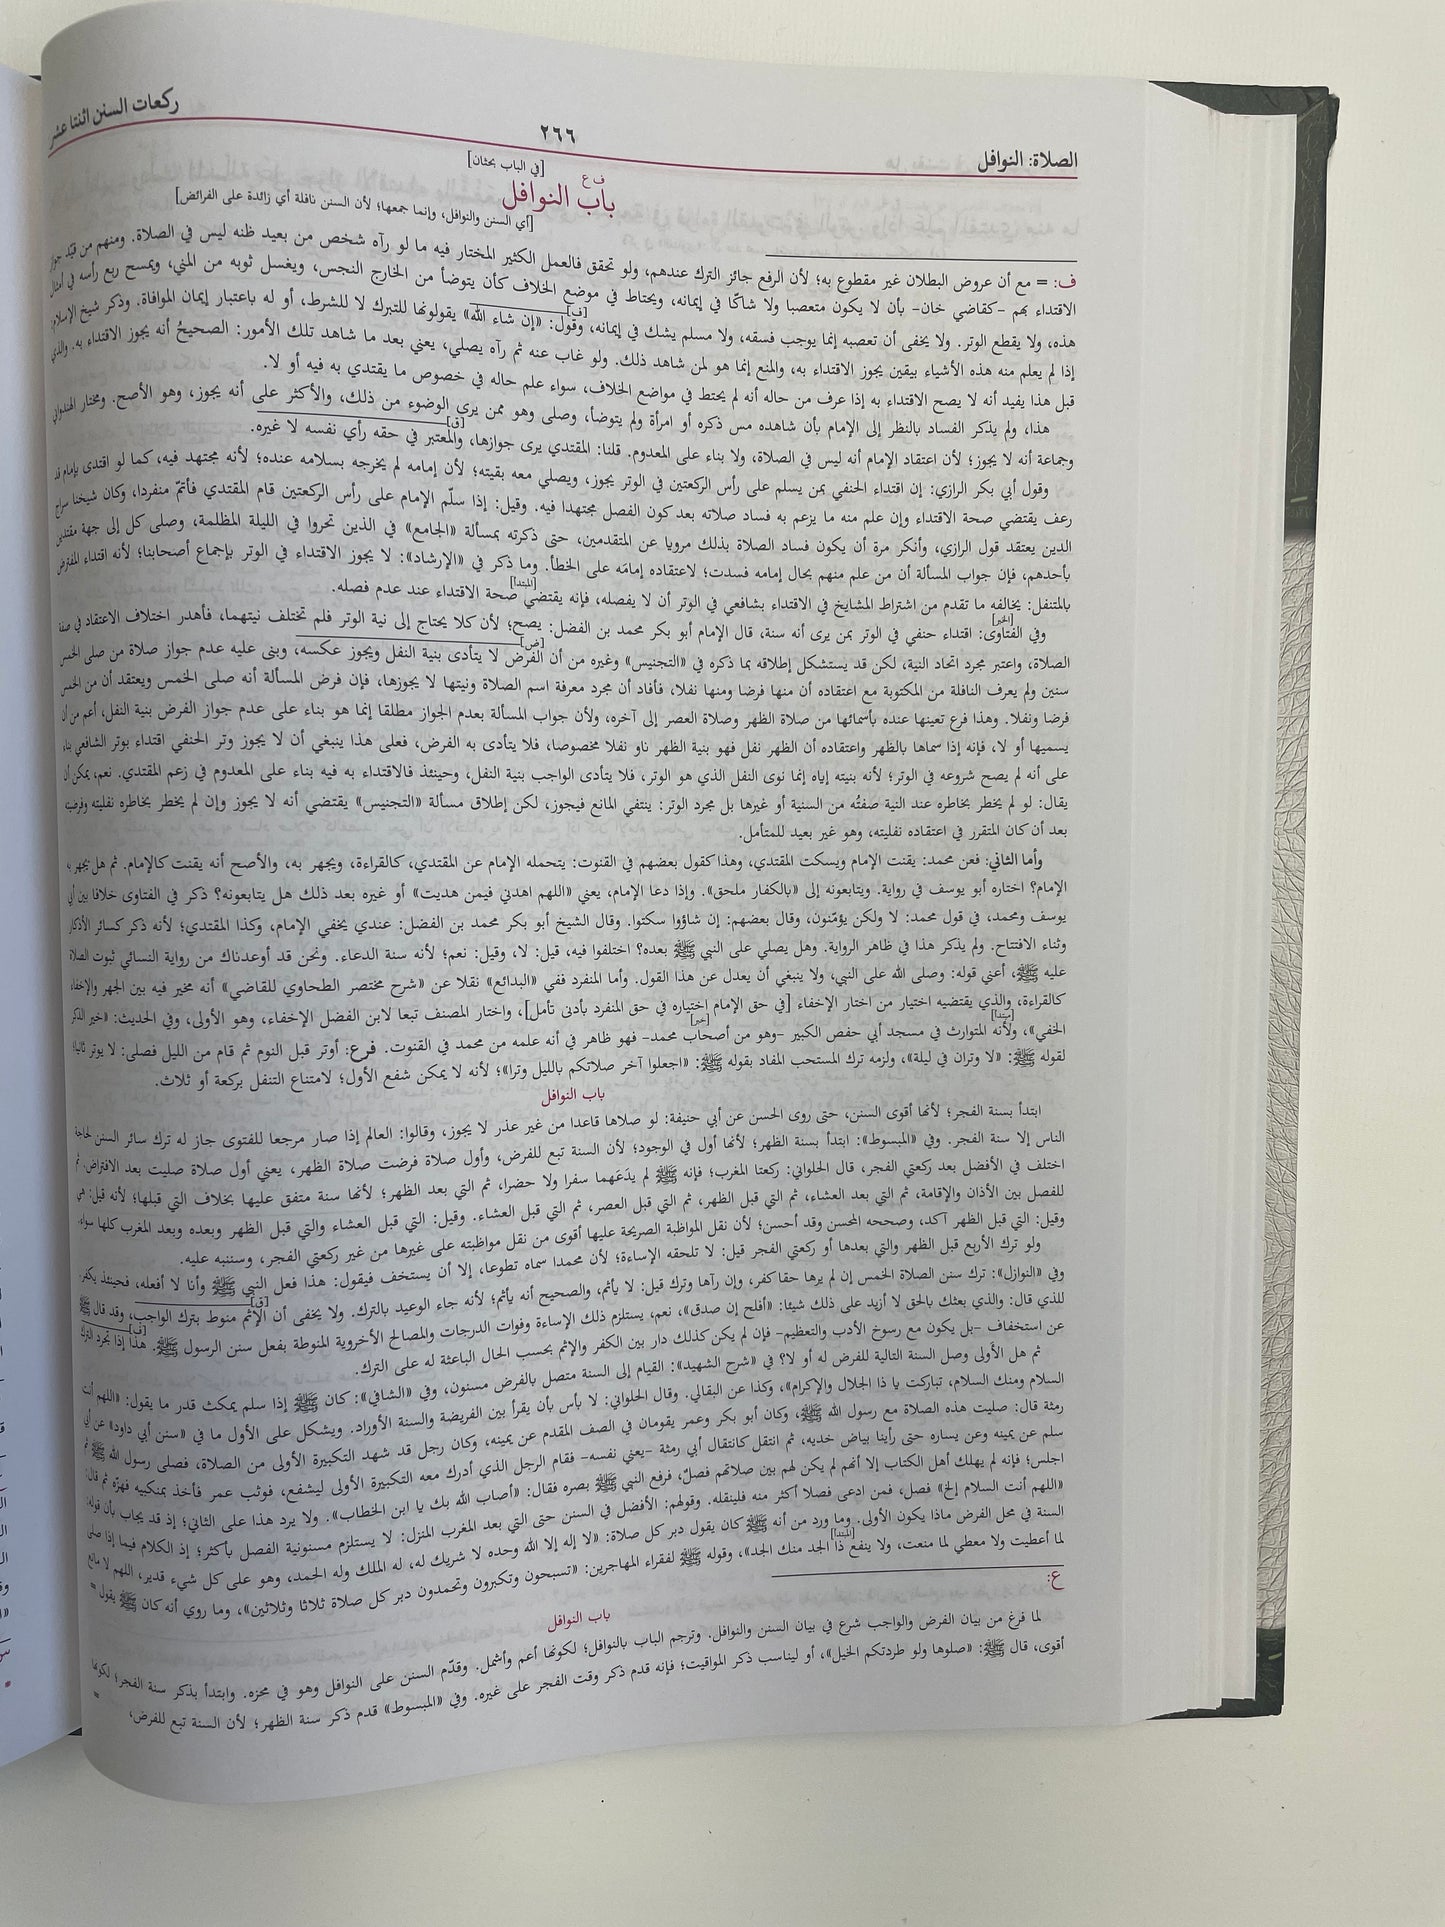 ركعات السنن اثنتا عشر
٢٦٦
الصلاة: النوافل
[في الباب بحثان]
ف ع
باب النوافل
[أي السنن والنوافل، وإنما جمعها؛ لأن السنن نافلة أي زائدة على الفرائض]
ف: = مع أن عروض البطلان غير مقطوع به؛ لأن الرفع جائز الترك عندهم، ولو تحقق فالعمل الكثير المختار فيه ما لو رآه شخص من بعيد ظنه ليس في الصلاة. ومنهم من قيد جواز
الاقتداء بهم -كقاضي خان- بأن لا يكون متعصبا ولا شاكّا في إيمانه، ويحتاط في موضع الخلاف كأن يتوضأ من الخارج النجس، ويغسل ثوبه من المني، ويمسح ربع رأسه في أمثال
هذه، ولا يقطع الوتر. ولا يخفى أن تعصبه إنما يوجب فسقه، ولا مسلم يشك في إيمانه، وقول: «إن شاء الله» يقولونها للتبرك لا للشرط، أو له باعتبار إيمان الموافاة. وذكر شيخ الإسلام:
إذا لم يعلم منه هذه الأشياء بيقين يجوز الاقتداء به، والمنع إنما هو لمن شاهد ذلك. ولو غاب عنه ثم رآه يصلي، يعني بعد ما شاهد تلك الأمور: الصحيحُ أنه يجوز الاقتداء به. والذي
قبل هذا يفيد أنه لا يصح الاقتداء به إذا عرف من حاله أنه لم يحتط في مواضع الخلاف، سواء علم حاله في خصوص ما يقتدي به فيه أو لا.
هذا، ولم يذكر الفساد بالنظر إلى الإمام بأن شاهده مس ذكره أو امرأة ولم يتوضأ، وصلى وهو ممن يرى الوضوء من ذلك، والأكثر على أنه يجوز، وهو الأصح. ومختار الهندواني
وجماعة أنه لا يجوز؛ لأن اعتقاد الإمام أنه ليس في الصلاة، ولا بناء على المعدوم. قلنا: المقتدي يرى جوازها، والمعتبر في حقه رأي نفسه لا غيره.
وقول أبي بكر الرازي: إن اقتداء الحنفي بمن يسلم على رأس الركعتين في الوتر يجوز، ويصلي معه بقيته؛ لأن إمامه لم يخرجه بسلامه عنده؛ لأنه مجتهد فيه، كما لو اقتدى بإمام قد
رعف يقتضي صحة الاقتداء وإن علم منه ما يزعم به فساد صلاته بعد كون الفصل مجتهدا فيه. وقيل: إذا سلّم الإمام على رأس الركعتين قام المقتدي فأتمّ منفردا، وكان شيخنا سراج
الدين يعتقد قول الرازي، وأنكر مرة أن يكون فساد الصلاة بذلك مرويا عن المتقدمين، حتى ذكرته بمسألة «الجامع» في الذين تحروا في الليلة المظلمة، وصلى كل إلى جهة مقتدين
بأحدهم، فإن جواب المسألة أن من علم منهم بحال إمامه فسدت؛ لاعتقاده إمامَه على الخطأ. وما ذكر في «الإرشاد»: لا يجوز الاقتداء في الوتر بإجماع أصحابنا؛ لأنه اقتداء المفترض
بالمتنفل: يخالفه ما تقدم من اشتراط المشايخ في الاقتداء بشافعي في الوتر أن لا يفصله، فإنه يقتضي صحة الاقتداء عند عدم فصله.
وفي الفتاوى: اقتداء حنفي في الوتر بمن يرى أنه سنة، قال الإمام أبو بكر محمد بن الفضل: يصح؛ لأن كلا يحتاج إلى نية الوتر فلم تختلف نيتهما، فأهدر اختلاف الاعتقاد في صفة
الصلاة، واعتبر مجرد اتحاد النية، لكن قد يستشكل إطلاقه بما ذكره في «التجنيس» وغيره من أن الفرض لا يتأدى بنية النفل ويجوز عكسه، وبنى عليه عدم جواز صلاة من صلى الخمس
سنين ولم يعرف النافلة من المكتوبة مع اعتقاده أن منها فرضا ومنها نفلا، فأفاد أن مجرد معرفة اسم الصلاة ونيتها لا يجوزها، فإن فرض المسألة أنه صلى الخمس ويعتقد أن من الخمس
فرضا ونفلا. وهذا فرع تعينها عنده بأسمائها من صلاة الظهر وصلاة العصر إلى آخره، ولأن جواب المسألة بعدم الجواز مطلقا إنما هو بناء على عدم جواز الفرض بنية النفل، أعم من أن
يسميها أو لا، فإنه إذا سماها بالظهر واعتقاده أن الظهر نفل فهو بنية الظهر ناو نفلا مخصوصا، فلا يتأدى به الفرض، فعلى هذا ينبغي أن لا يجوز وتر الحنفي اقتداء بوتر الشافعي بناء
على أنه لم يصح شروعه في الوتر؛ لأنه بنيته إياه إنما نوى النفل الذي هو الوتر، فلا يتأدى الواجب بنية النفل، وحينئذ فالاقتداء به فيه بناء على المعدوم في زعم المقتدي. نعم، يمكن أن
يقال: لو لم يخطر بخاطره عند النية صفتُه من السنية أو غيرها بل مجرد الوتر: ينتفي المانع فيجوز، لكن إطلاق مسألة «التجنيس» يقتضي أنه لا يجوز وإن لم يخطر بخاطره نفليته وفرضيته
بعد أن كان المتقرر في اعتقاده نفليته، وهو غير بعيد للمتأمل.
وأما الثاني: فعن محمد: يقنت الإمام ويسكت المقتدي، وهذا كقول بعضهم في القنوت: يتحمله الإمام عن المقتدي، كالقراءة، ويجهر به، والأصح أنه يقنت كالإمام. ثم هل يجهر به
الإمام؟ اختاره أبو يوسف في رواية. ويتابعونه إلى «بالكفار ملحق». وإذا دعا الإمام، يعني «اللهم اهدني فيمن هديت» أو غيره بعد ذلك هل يتابعونه؟ ذكر في الفتاوى خلافا بين أبي
يوسف ومحمد، في قول محمد: لا ولكن يؤمّنون، وقال بعضهم: إن شاؤوا سكتوا. وقال الشيخ أبو بكر محمد بن الفضل: عندي يخفي الإمام، وكذا المقتدي؛ لأنه ذكر كسائر الأذكار
وثناء الافتتاح. ولم يذكر هذا في ظاهر الرواية. وهل يصلي على النبي ﷺ بعده؟ اختلفوا فيه، قيل: لا، وقيل: نعم؛ لأنه سنة الدعاء. ونحن قد أوعدناك من رواية النسائي ثبوت الصلاة
عليه ﷺ، أعني قوله: وصلى الله على النبي، ولا ينبغي أن يعدل عن هذا القول. وأما المنفرد ففي «البدائع» نقلا عن «شرح مختصر الطحاوي للقاضي» أنه مخير فيه بين الجهر والإخفاء
كالقراءة، والذي يقتضيه اختيار من اختار الإخفاء [في حق الإمام اختياره في حق المنفرد بأدنى تأمل]، واختار المصنف تبعا لابن الفضل الإخفاء، وهو الأولى، وفي الحديث: «خير الذكر
الخفي»، ولأنه المتوارث في مسجد أبي حفص الكبير -وهو من أصحاب محمد- فهو ظاهر في أنه علمه من محمد في القنوت. فرع: أوتر قبل النوم ثم قام من الليل فصلى: لا يوتر ثانيا؛
لقوله ﷺ: «لا وتران في ليلة»، ولزمه ترك المستحب المفاد بقوله ﷺ: «اجعلوا آخر صلاتكم بالليل وترا»؛ لأنه لا يمكن شفع الأول؛ لامتناع التنفل بركعة أو ثلاث.
باب النوافل
ابتدأ بسنة الفجر؛ لأنها أقوى السنن، حتى روى الحسن عن أبي حنيفة: لو صلاها قاعدا من غير عذر لا يجوز، وقالوا: العالم إذا صار مرجعا للفتوى جاز له ترك سائر السنن لحاجة
الناس إلا سنة الفجر. وفي «المبسوط»: ابتدأ بسنة الظهر؛ لأنها أول في الوجود؛ لأن السنة تبع للفرض، وأول صلاة فرضت صلاة الظهر، يعني أول صلاة صليت بعد الافتراض. ثم
اختلف في الأفضل بعد ركعتي الفجر، قال الحلواني: ركعتا المغرب؛ فإنه ﷺ لم يدَعَهما سفرا ولا حضرا، ثم التي بعد الظهر؛ لأنها سنة متفق عليها بخلاف التي قبلها؛ لأنه قيل: هي
للفصل بين الأذان والإقامة، ثم التي بعد العشاء، ثم التي قبل الظهر، ثم التي قبل العصر، ثم التي قبل العشاء. وقيل: التي قبل العشاء والتي قبل الظهر وبعده وبعد المغرب كلها سواء.
وقيل: التي قبل الظهر آكد، وصححه المحسن وقد أحسن؛ لأن نقل المواظبة الصريحة عليها أقوى من نقل مواظبته على غيرها من غير ركعتي الفجر، وسننبه عليه.
ولو ترك الأربع قبل الظهر والتي بعدها أو ركعتي الفجر قيل: لا تلحقه الإساءة؛ لأن محمدا سماه تطوعا، إلا أن يستخف فيقول: هذا فعل النبي ﷺ وأنا لا أفعله، فحينئذ يكفر.
وفي «النوازل»: ترك سنن الصلاة الخمس إن لم يرها حقا كفر، وإن رآها وترك قيل: لا يأثم، والصحيح أنه يأثم؛ لأنه جاء الوعيد بالترك. ولا يخفى أن الإثم منوط بترك الواجب، وقد قال ﷺ
للذي قال: والذي بعثك بالحق لا أزيد على ذلك شيئا: «أفلح إن صدق»، نعم، يستلزم ذلك الإساءة وفوات الدرجات والمصالح الأخروية المنوطة بفعل سنن الرسول ﷺ. هذا إذا تجرد الترك
عن استخفاف -بل يكون مع رسوخ الأدب والتعظيم- فإن لم يكن كذلك دار بين الكفر والإثم بحسب الحال الباعثة له على الترك.
ثم هل الأولى وصل السنة التالية للفرض له أو لا؟ في «شرح الشهيد»: القيام إلى السنة متصل بالفرض مسنون، وفي «الشافي»: كان ﷺ إذا سلم يمكث قدر ما يقول: «اللهم أنت
السلام ومنك السلام، تباركت يا ذا الجلال والإكرام»، وكذا عن البقالي. وقال الحلواني: لا بأس بأن يقرأ بين الفريضة والسنة الأوراد. ويشكل على الأول ما في «سنن أبي داود» عن أبي
رمثة قال: صليت هذه الصلاة مع رسول الله ﷺ، وكان أبو بكر وعمر يقومان في الصف المقدم عن يمينه، وكان رجل قد شهد التكبيرة الأولى من الصلاة، فصلى رسول الله ﷺ ثم
سلم عن يمينه وعن يساره حتى رأينا بياض خديه، ثم انتقل كانتقال أبي رمثة -يعني نفسه- فقام الرجل الذي أدرك معه التكبيرة الأولى ليشفع، فوثب عمر فأخذ بمنكبيه فهزّه ثم قال:
اجلس؛ فإنه لم يهلك أهل الكتاب إلا أنهم لم يكن لهم بين صلاتهم فصلٌ، فرفع النبي ﷺ بصره فقال: «أصاب الله بك يا ابن الخطاب». ولا يرد هذا على الثاني؛ إذ قد يجاب بأن قوله:
«اللهم أنت السلام إلخ» فصل، فمن ادعى فصلا أكثر منه فلينقله. وقولهم: الأفضل في السنن حتى التي بعد المغرب المنزل: لا يستلزم مسنونية الفصل بأكثر؛ إذ الكلام فيما إذا صلى
السنة في محل الفرض ماذا يكون الأولى. وما ورد من أنه ﷺ كان يقول دبر كل صلاة: «لا إله إلا الله وحده لا شريك له، له الملك وله الحمد، وهو على كل شيء قدير، اللهم لا مانع
لما أعطيت ولا معطي لما منعت، ولا ينفع ذا الجد منك الجد»، وقوله ﷺ لفقراء المهاجرين: «تسبحون وتكبرون وتحمدون دبر كل صلاة ثلاثا وثلاثين»، وما روي أنه كان ﷺ يقول =
ع:
باب النوافل
لما فرغ من بيان الفرض والواجب شرع في بيان السنن والنوافل. وترجم الباب بالنوافل؛ لكونها أعم وأشمل. وقدّم السنن على النوافل وهو في محزه. وابتدأ بذكر سنة الفجر؛ لكونها
أقوى، قال ﷺ: «صلوها ولو طردتكم الخيل»، أو ليناسب ذكر المواقيت؛ فإنه قدم ذكر وقت الفجر على غيره. وفي «المبسوط» قدم ذكر سنة الظهر؛ لأن السنة تبع للفرض، =